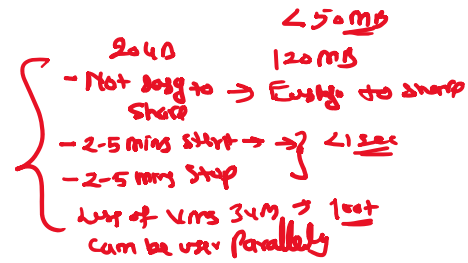 <50MB
20GB 120MB
- Not easy to → Easy to share
share
- 2-5 mins start → → <1 sec
- 2-5 mins stop
of VMs 3VM → 100+
can be user Parallely